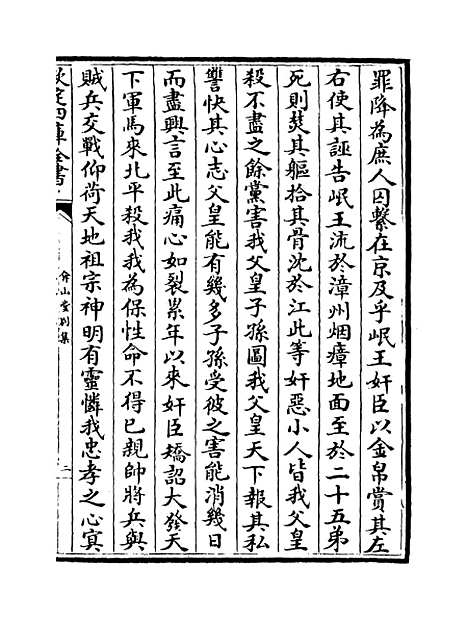 罪降為庶人囚繫在京及乎岷王奸臣以金帛賞其左
右使其誣告岷王流於漳州烟瘴地面至於二十五弟
死則焚其軀拾其骨沈於江此等奸惡小人皆我父皇
殺不盡之餘黨害我父皇子孫圖我父皇天下報其私
讐快其心志父皇能有幾多子孫受彼之害能消幾日
而盡興言至此痛心如裂累年以來奸臣矯詔大發天
下軍馬來北平殺我我為保性命不得已親帥將兵與
賊兵交戰仰荷天地祖宗神明有靈憐我忠孝之心冥
欽定四庫全書
弇山堂别集